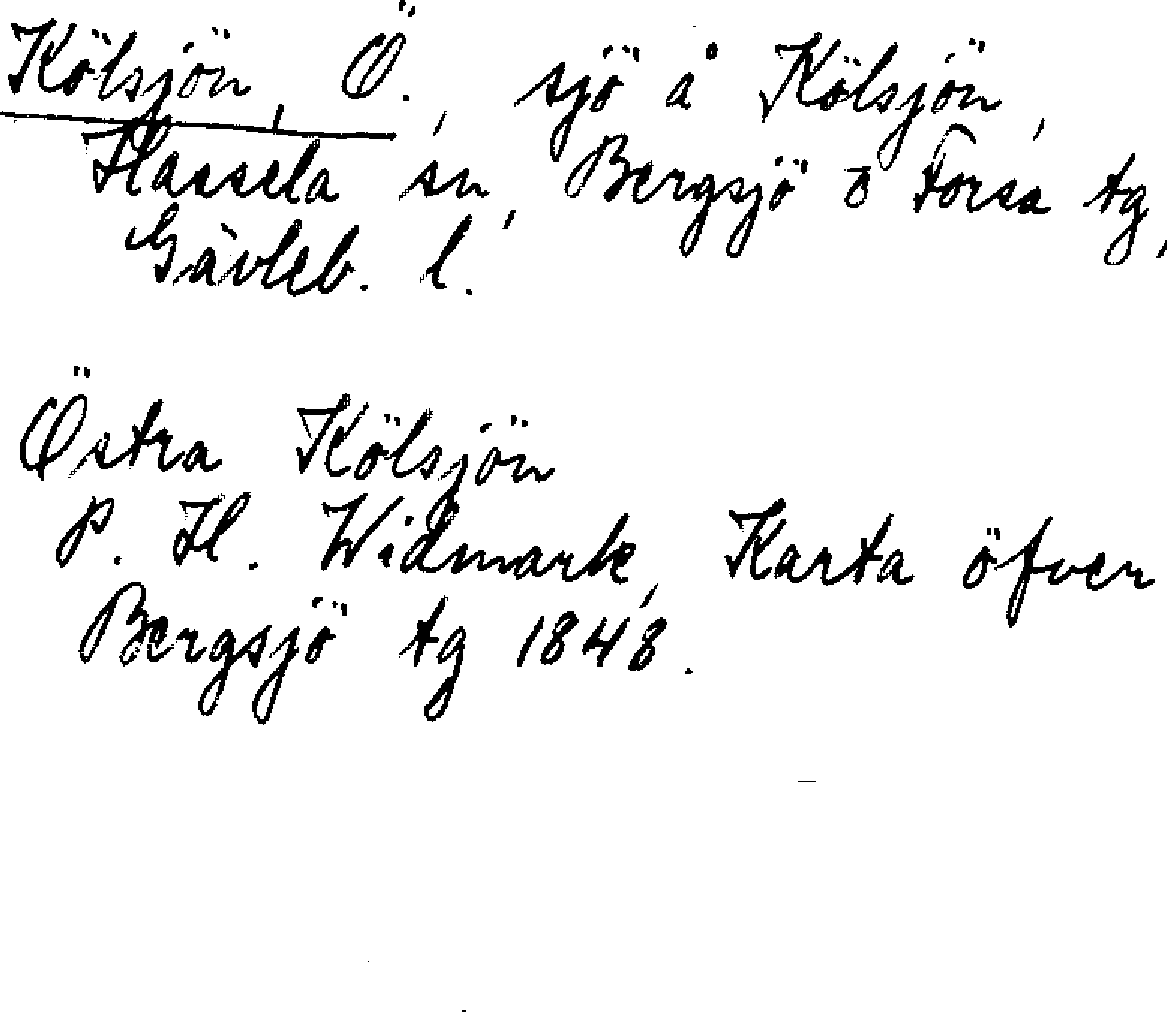 Kölsjön, Ö., sjö å Kölsjön,
Hassela sn, Bergsjö o Forsa tg,
Gävleb. l.
Östra Kölsjön
P. H. Widmark, Karta öfver
Bergsjö tg 1848.